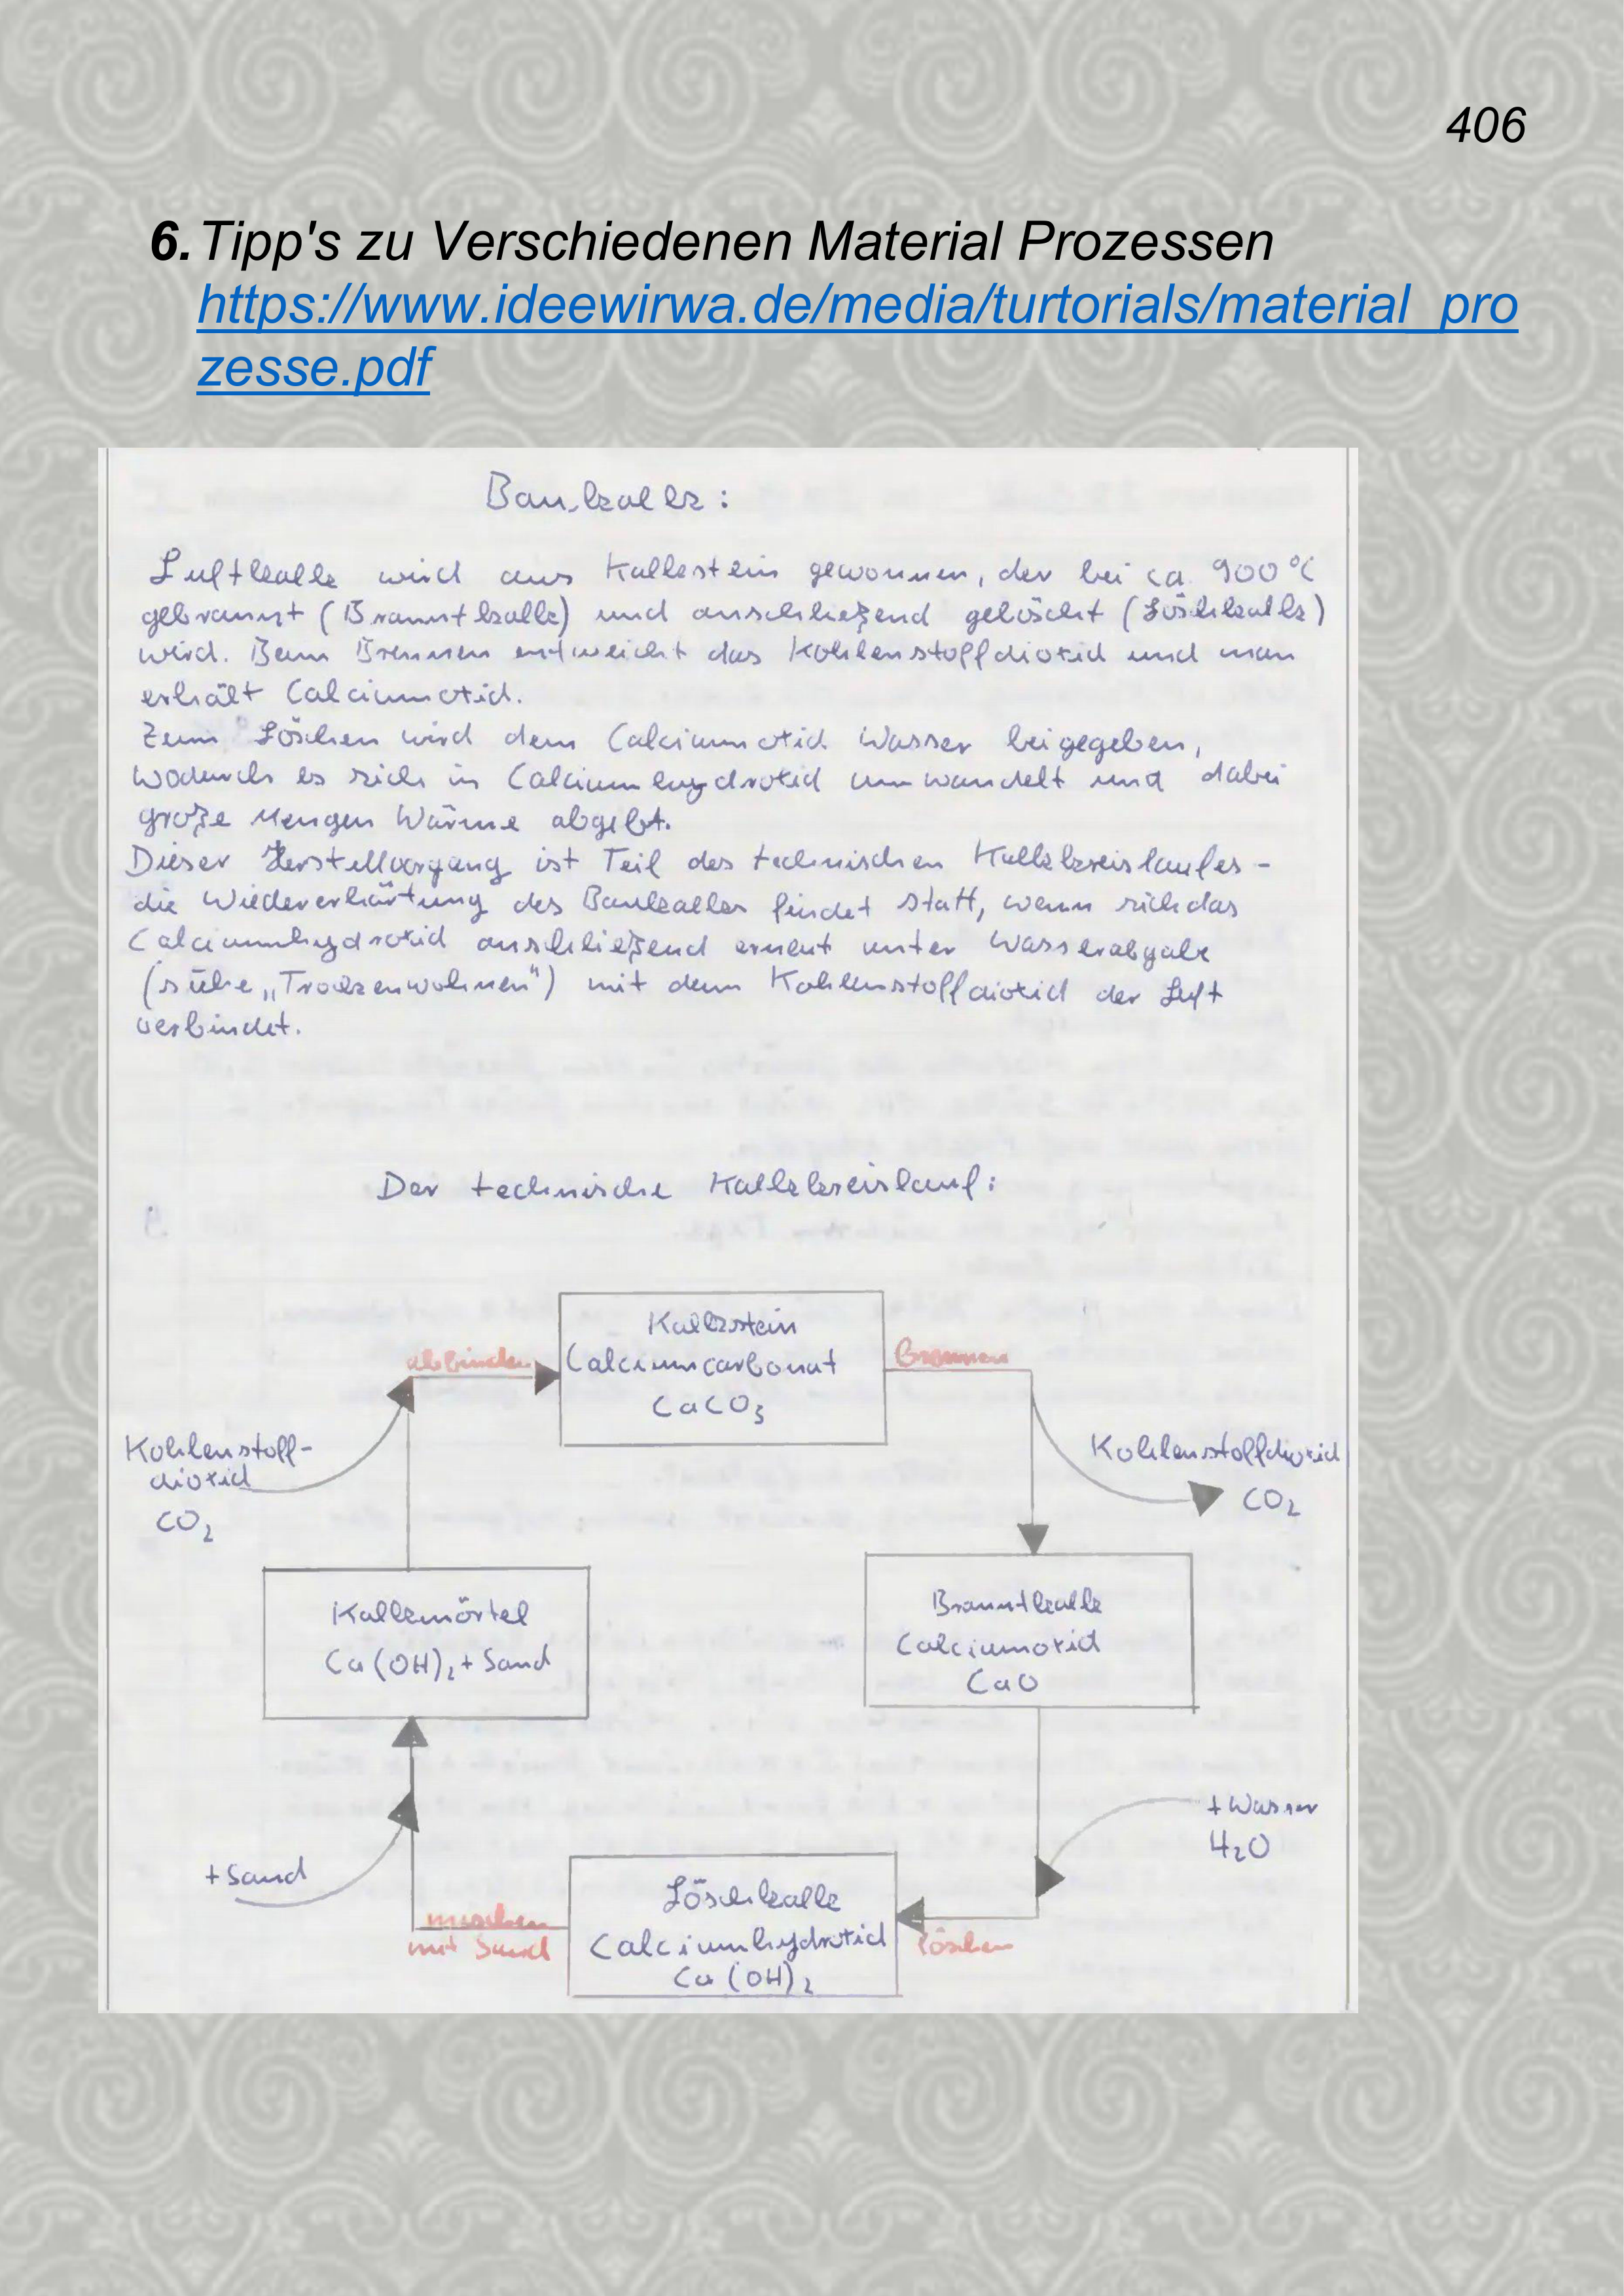 406
6. Tipp's zu Verschiedenen Material Prozessen
https://www.ideewirwa.de/media/turtorials/material_pro
zesse.pdf
Baukalk:
Luftkalk wird aus Kalkstein gewonnen, der bei ca. 900°C
gebrannt (Branntkalk) und anschließend gelöscht (Löschkalk)
wird. Beim Brennen entweicht das Kohlenstoffdioxid und man
erhält Calciumoxid.
Zum Löschen wird dem Calciumoxid Wasser beigegeben,
wodurch es sich in Calciumhydroxid umwandelt und dabei
große Mengen Wärme abgibt.
Dieser Herstellvorgang ist Teil des technischen Kalkkreislaufes -
die Wiedererhärtung des Baukalkes findet statt, wenn sich das
Calciumhydroxid anschließend erneut unter Wasserabgabe
(siehe „Trockenwohnen") mit dem Kohlenstoffdioxid der Luft
verbindet.
Der technische Kalkkreislauf:
Kalkstein
Calciumcarbonat
CaCO₃
abbinden
Brennen
Kohlenstoff-
dioxid
CO₂
Kohlenstoffdioxid
CO₂
Kalkmörtel
Ca(OH)₂ + Sand
Branntkalk
Calciumoxid
CaO
+ Wasser
H₂O
+ Sand
Löschkalk
Calciumhydroxid
Ca(OH)₂
mischen
mit Sand
löschen